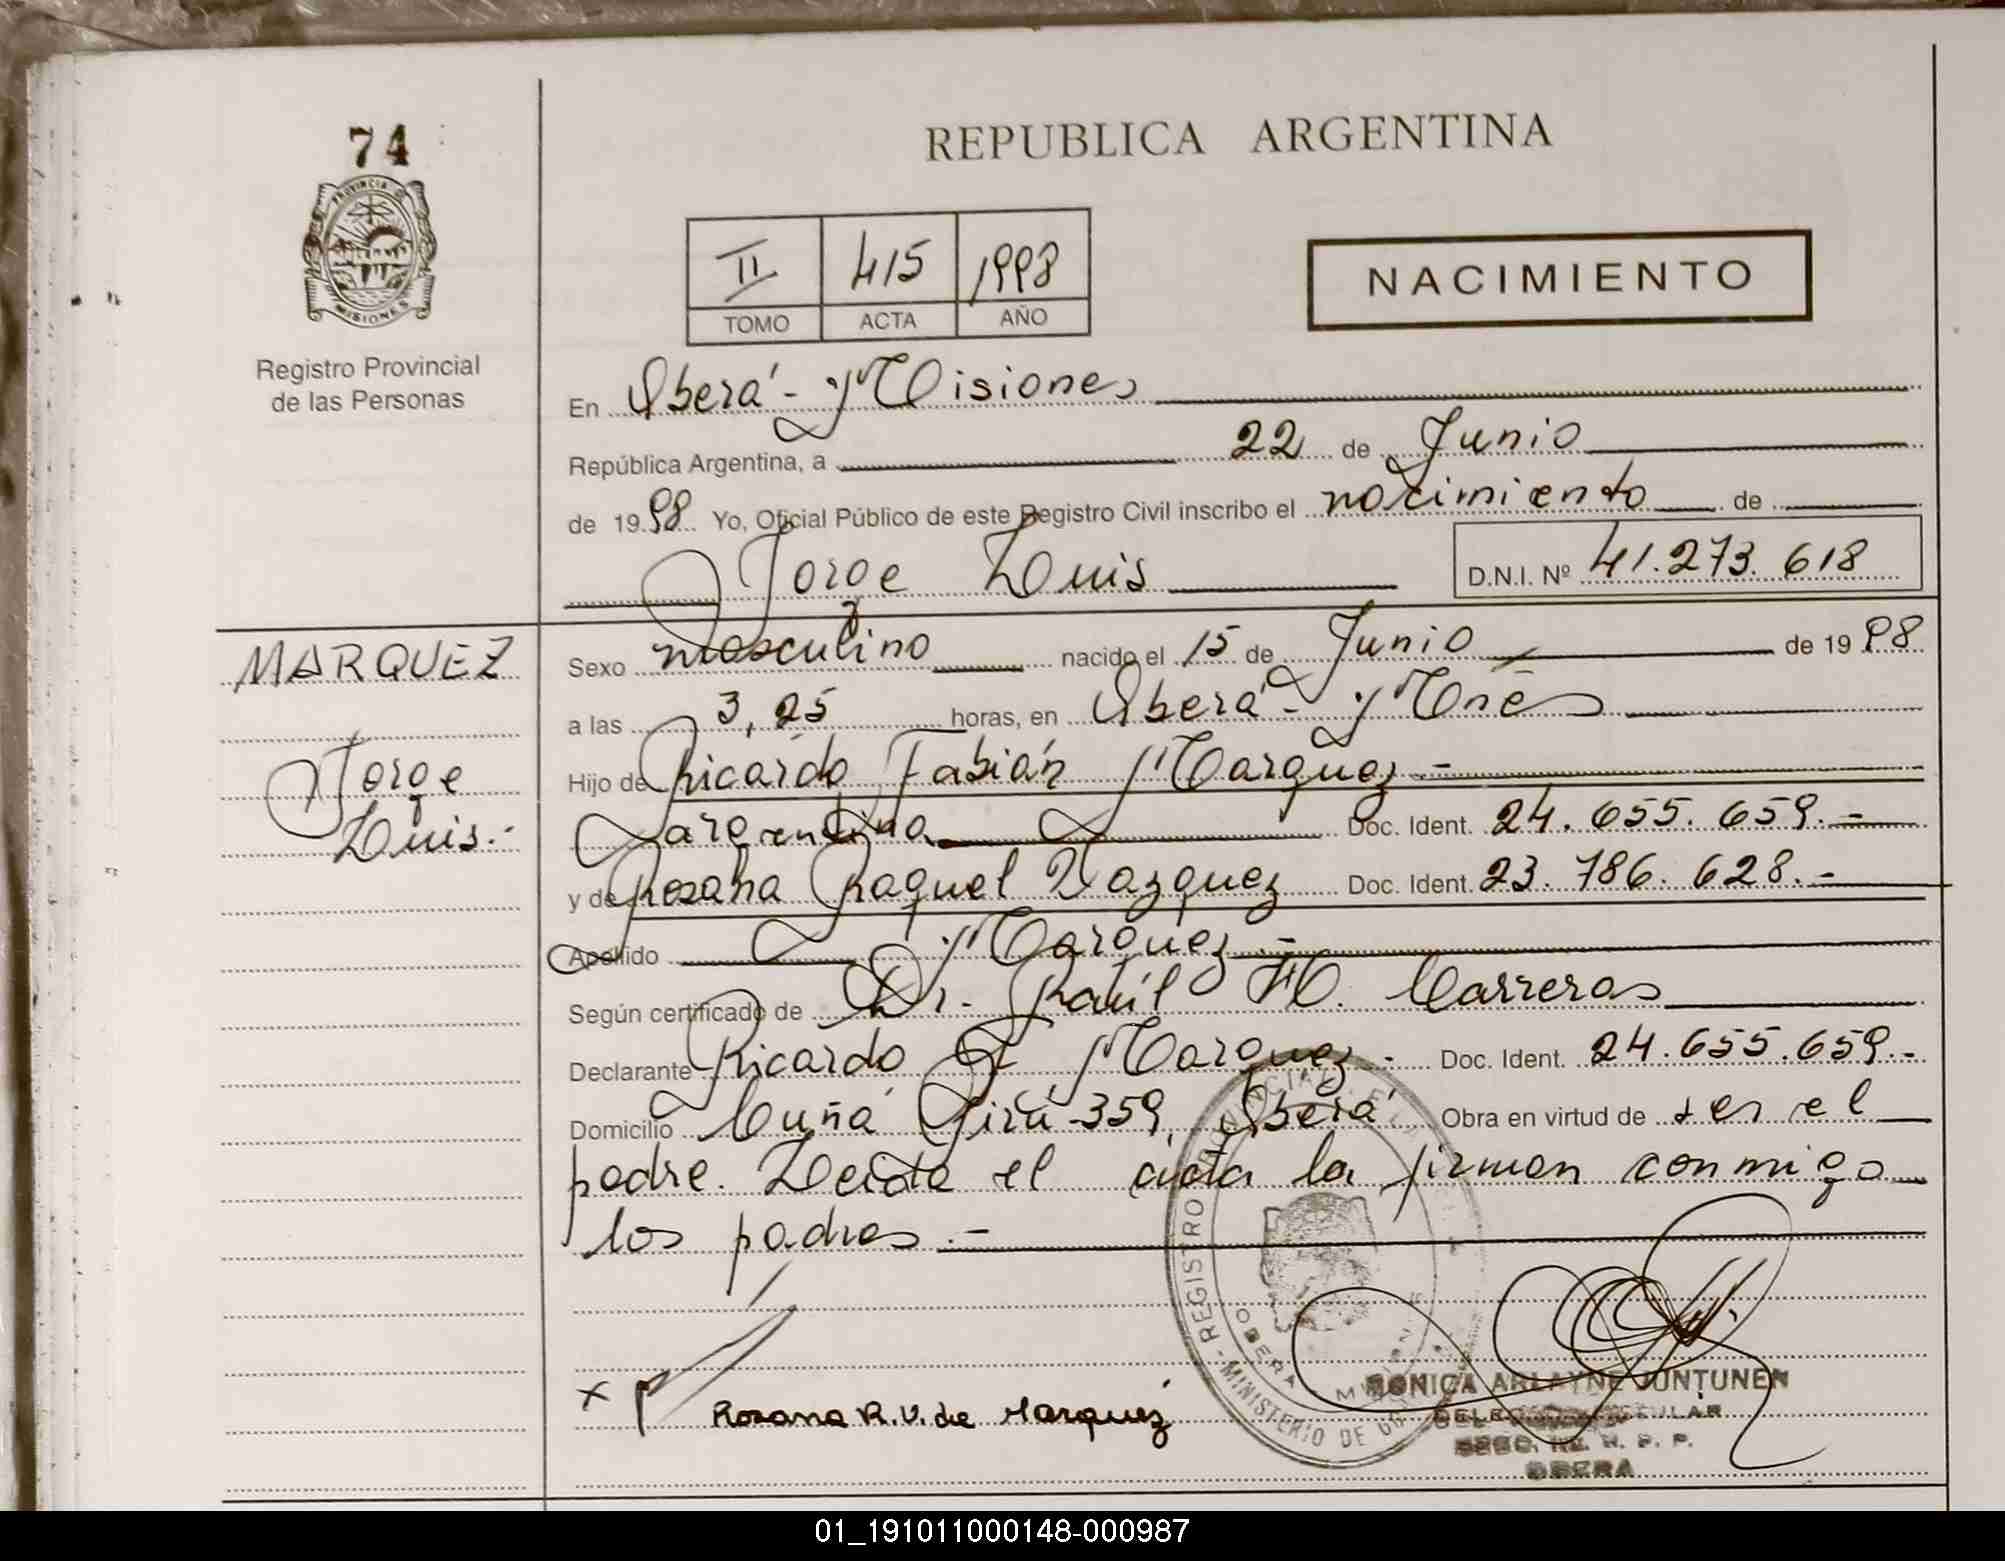 74
REPUBLICA ARGENTINA
PROVINCIA D
MISIONES
II 415 1998
TOMO ACTA AÑO
NACIMIENTO
Registro Provincial
de las Personas
En Oberá - Misiones
República Argentina, a 22 de Junio
de 1998 Yo, Oficial Público de este Registro Civil inscribo el nacimiento de
Jorge Luis D.N.I. Nº 41.273.618
MARQUEZ
Jorge
Luis.-
Sexo masculino nacido el 15 de Junio de 1998
a las 3,25 horas, en Oberá - Mnes
Hijo de Ricardo Fabián Marquez.-
argentino Doc. Ident. 24.655.659.-
y de Rosana Raquel Vazquez Doc. Ident. 23.786.628.-
Apellido Marquez.-
Según certificado de Dr. Raúl H. Carreras
Declarante Ricardo F Marquez.- Doc. Ident. 24.655.659.-
Domicilio Cuñá Pirú-359, Oberá Obra en virtud de ser el
padre. Leida el acta la firman conmigo
los padres.-
x
Rosana R.V. de Marquez
REGISTRO PROVINCIAL DE LA
- MINISTERIO DE GO
OBERA
MISIONES
MONICA ARLAYNE JUNTUNEN
R. P. P.
OBERA
01_191011000148-000987